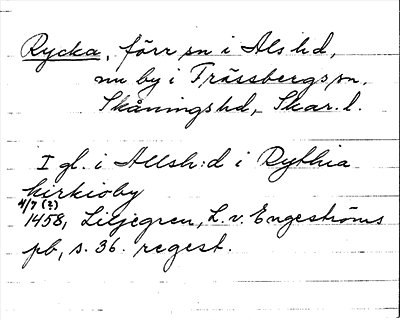 Rycka, förr sn i Als hd,
nu by i Trässbergs sn.
Skånings hd, Skar. l.
I gl. i Allsh:d i Rythia
kirkioby
4/7 (?)
1458, Liljegren, L. v. Engeströms
pb, s. 36. regest.